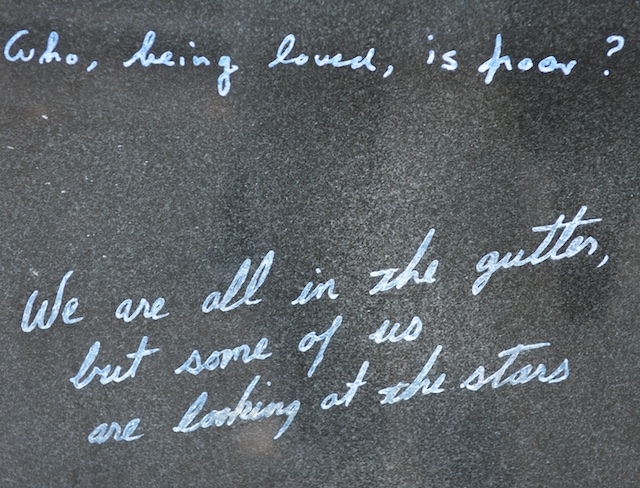 Who, being loved, is poor?
We are all in the gutter,
but some of us
are looking at the stars